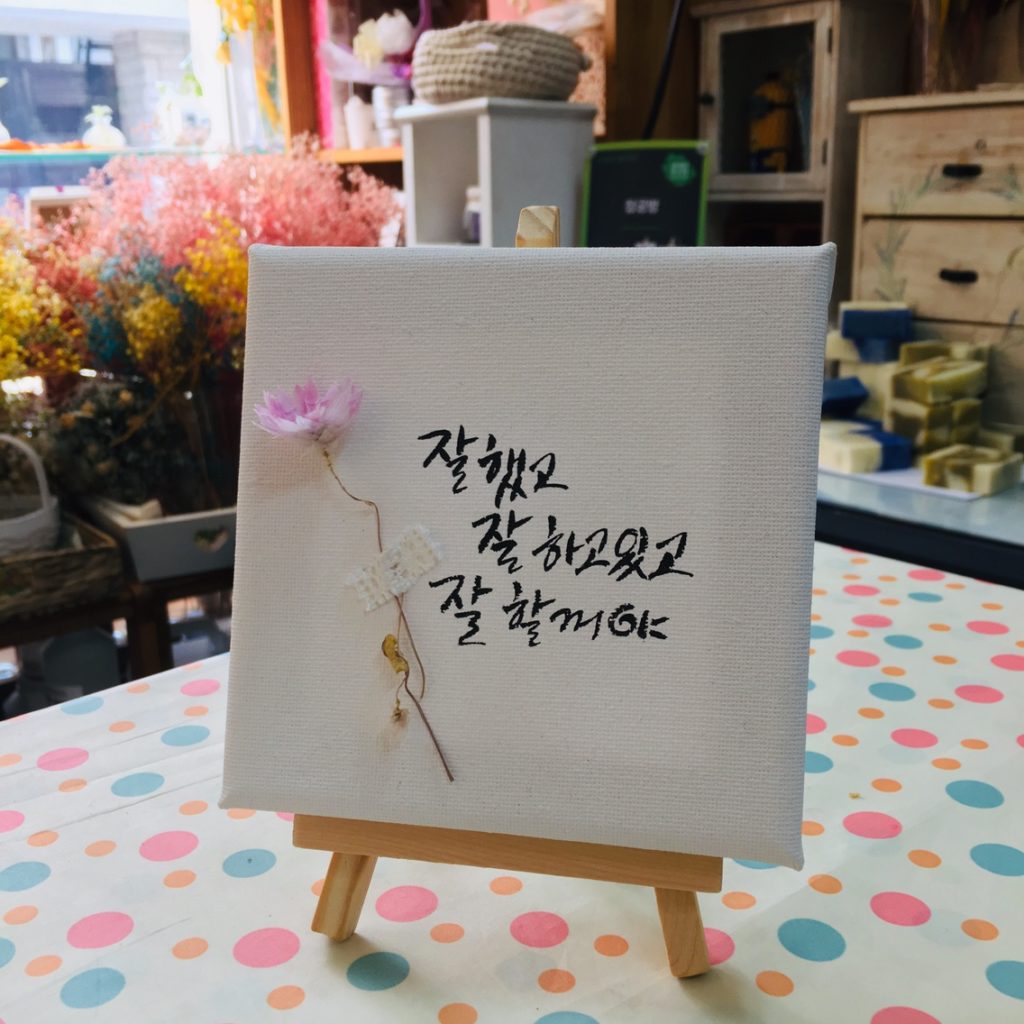 잘 했고
잘 하고있고
잘 할꺼야